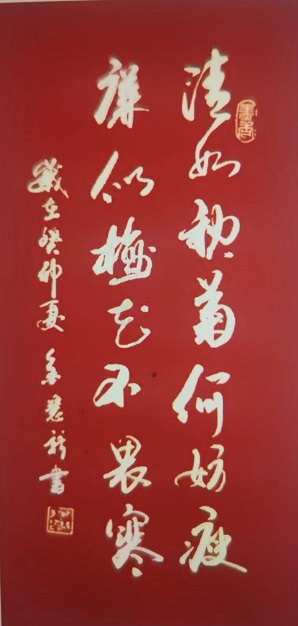 清如秋菊何妨瘦
廉似梅花不畏寒
歲在癸卯夏 慧 書